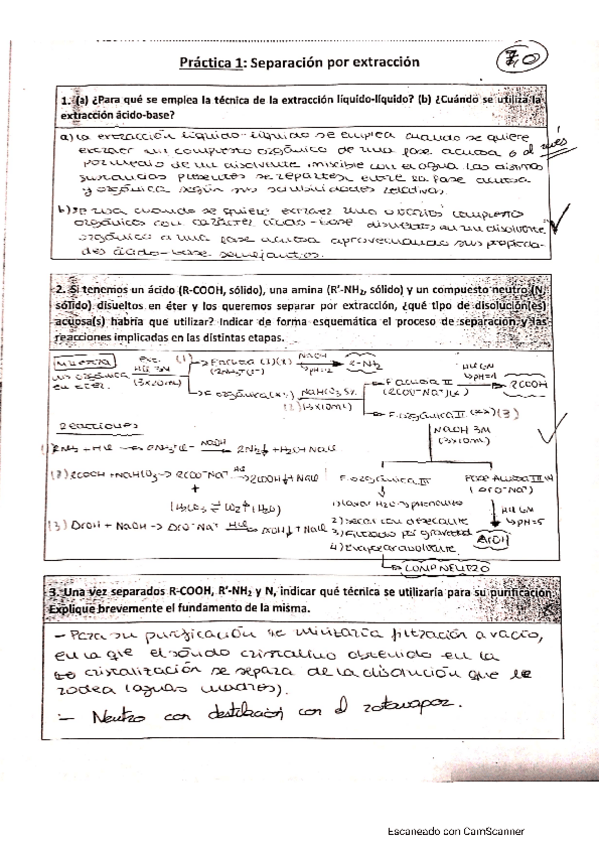 7,0
Práctica 1: Separación por extracción
1. (a) ¿Para qué se emplea la técnica de la extracción líquido-líquido? (b) ¿Cuándo se utiliza la
extracción ácido-base?
a) La extracción líquido-líquido se emplea cuando se quiere
extraer un compuesto orgánico de una fase acuosa o al revés
por medio de un disolvente inmiscible con el agua. Las distintas
sustancias presentes se reparten entre la fase acuosa
y orgánica según sus solubilidades relativas.
b) se usa cuando se quiere extraer uno o varios compuestos
orgánicos con carácter ácido-base disueltos en un disolvente
orgánico a una fase acuosa aprovechando sus propieda-
des ácido-base
2. Si tenemos un ácido (R-COOH, sólido), una amina (R'-NH₂, sólido) y un compuesto neutro (N,
sólido) disueltos en éter y los queremos separar por extracción, ¿qué tipo de disolución(es)
acuosa(s) habría que utilizar? Indicar de forma esquemática el proceso de separación y las
reacciones implicadas en las distintas etapas.
HCl 3M
(3x10mL)
NaOH
R-NH₂
F. orgánica
NaHCO₃ 5%
(3x10mL)
F. acuosa II
HCl 6M
RCOOH
F. orgánica II (3)
NaOH 3M
(3x10mL)
Reacciones
(2) RCOOH + NaHCO₃ → RCOO⁻Na⁺ HCl RCOOH↓ + NaCl
+
(H₂CO₃ ⇌ CO₂↑ + H₂O)
(3) ArOH + NaOH → ArO⁻Na⁺ HCl ArOH↓ + NaCl
F. orgánica III
Fase Acuosa III
(ArO⁻Na⁺)
HCl 6M
↳pH=5
ArOH
2) Secar con desecante
3) Filtrado por gravedad
4) Evaporar disolvente
COMP NEUTRO
3. Una vez separados R-COOH, R'-NH₂ y N, indicar qué técnica se utilizaría para su purificación.
Explique brevemente el fundamento de la misma.
- Para su purificación se filtración a vacío,
en la que el sólido cristalino obtenido en la
cristalización se separa de la disolución que le
rodea (aguas madres).
- Neutro con destilación con el rotavapor.
Escaneado con CamScanner